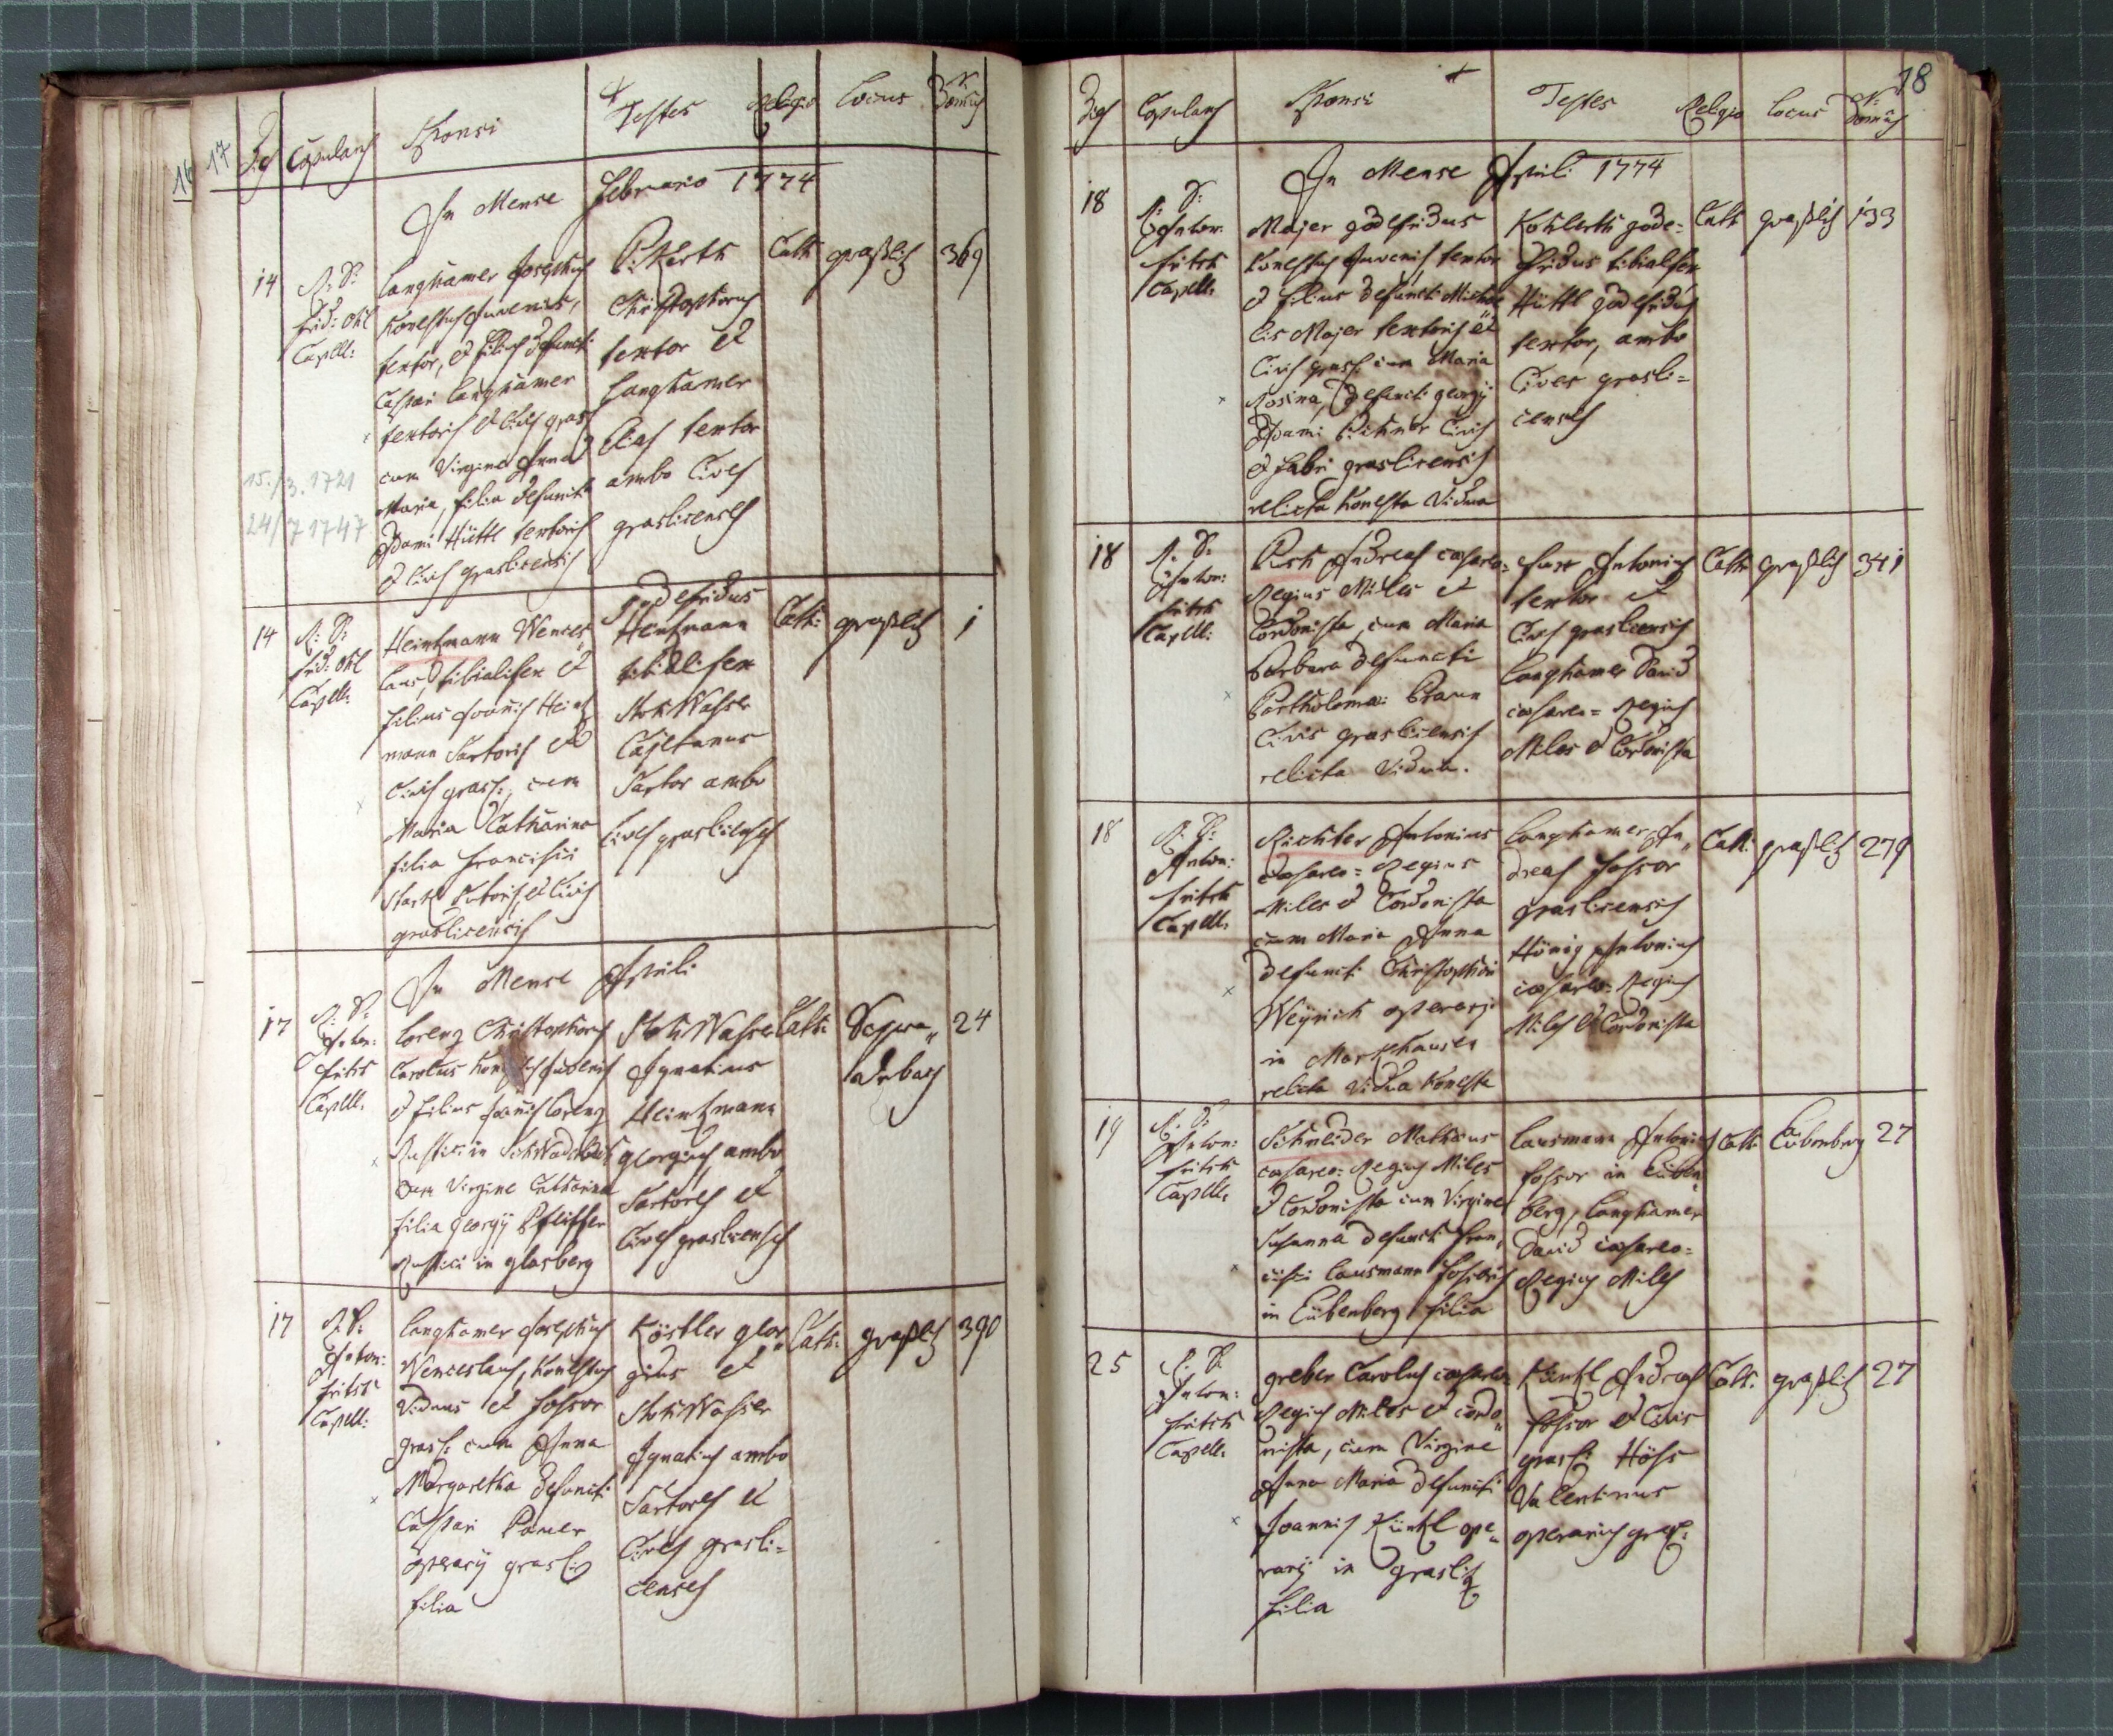 16 17
Dies Copulans Sponsi Testes Religio Locus Nr. Domus
In Mense Februario 1774
14
R: D:
Frid: Ohl
Capell:
Langhamer Josephus
honestus Juvenis,
textor, et filius defuncti
Caspari Langhamer
textoris et Civis grasl
cum Virgine Anna
Maria, filia defuncti
Adami Hüttl textoris
et Civis graslicensis
Christophorus
textor et
Langhamer
Elias textor
ambo Cives
graslicenses
Cath: graßlitz 369
15./3. 1721
24/7 1747
14
R: D:
Frid: Ohl
Capell:
Heintzmann Wences
laus, tibialifex et
filius Joannis Heintz
mann Sartoris et
Civis grasl: cum
Maria Catharina
filia Francisci
Stark Sutoris, et Civis
graslicensis
godefridus
Heintzmann
tibialifex
StokWasser
Cajetanus
Sartor ambo
Cives graslicenses
Cath: graßlitz 1
In Mense Aprili
17
R: D:
Anton:
Fritsch
Capell:
Lorenz Christophorus
Carolus honestus Juvenis
et filius Joannis Lorenz
Rustici in Schwaderbach
cum Virgine Catharina
filia georgij Pfeiffer
Rustici in glasberg
StokWasser
Ignatius
Heintzmann
georgius, ambo
Sartores et
Cives graslicenses
Cath: 24
17
R: D:
Anton:
Fritsch
Capell:
Langhamer Josephus
Wenceslaus, honestus
Viduus et fossor
grasl: cum Anna
Margaretha defuncti
Caspari Pomer
operarij grasl:
filia
Köstler geor
gius et
StokWasser
Ignatius ambo
Sartores et
Cives grasli=
censes
Cath: graßlitz 390
18
Dies Copulans Sponsi Testes Religio Locus Nr. Domus
In Mense Aprili 1774
18
R: D:
Anton:
Fritsch
Capell:
Majer godefridus
honestus Juvenis, textor
et filius defuncti Micha
lis Majer textoris et
Civis grasl: cum Maria
Rosina, defuncti georgij
Adami civis
et fabri graslicensis
relicta honesta Vidua
Kohlerth gode=
fridus tibialifex
Hüttl godefridus
textor, ambo
Cives grasli=
censes
Cath graßlitz 133
18
R: D:
Anton:
Fritsch
Capell:
Andreas cæsareo=
Regius Miles et
Cordonista, cum Maria
Barbara defuncti
Bartholomæi Braun
Civis graslicensis
relicta Vidua.
Fux Antonius
textor et
Civis graslicensis
Langhamer David
cæsareo= Regius
Miles et Cordonista
Cath: graßlitz 341
18
R: D:
Anton:
Fritsch
Capell:
Richter Antonius
cæsareo= Regius
Miles et Cordonista
cum Maria Anna
defuncti Christophori
Weyrich operarij
in Markhausen
relicta Vidua honesta
Langhamer An„
dreas fossor
graslicensis
Hönig Antonius
cæsareo= Regius
Miles et Cordonista
Cath: graßlitz 279
19
R: D:
Anton:
Fritsch
Capell:
Schneider Mathæus
cæsareo= Regius Miles
et Cordonista cum Virgine
Susanna defuncti Fran„
cisci Lausmann fossoris
in Eübenberg filia
Lausmann Antonius
fossor in Eüben„
berg, Langhamer
David cæsareo=
Regius Miles
Cath: Eübenberg 27
25
R: D:
Anton:
Fritsch
Capell:
greber Carolus cæsareo
Regius Miles et Cordo„
nista, cum Virgine
Anna Maria defuncti
Joannis Künzl ope„
rarij in graslitz
filia
Künzl Andreas
fossor et Civis
grasl: Höss
Valentinus
operarius grasl:
Cath: graßlitz 27